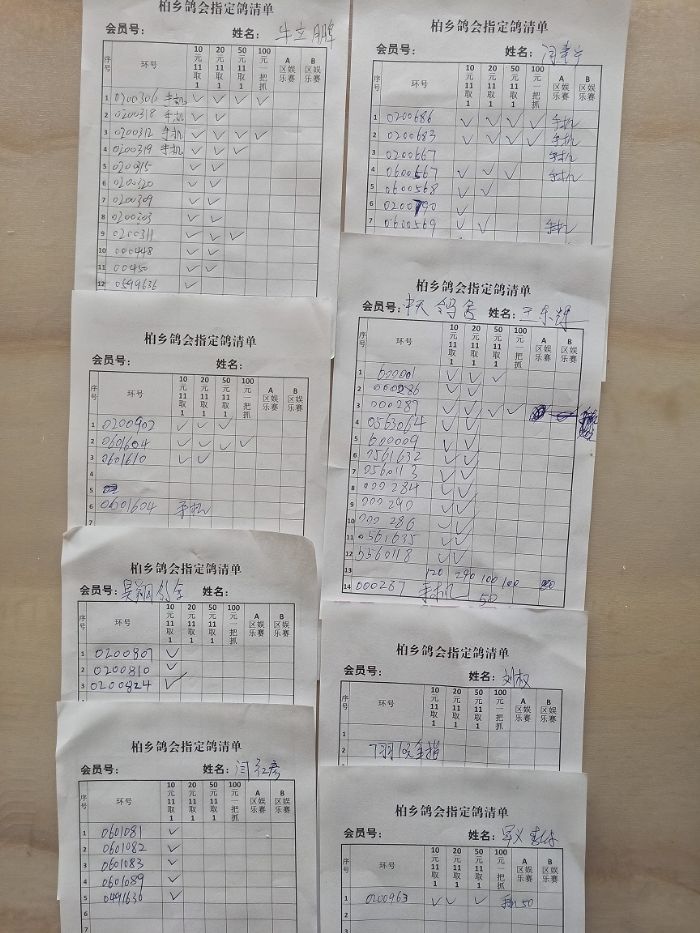 柏乡鸽会指定鸽清单
会员号： 姓名：牛立朋
序号 环号 10元11取1 20元11取1 50元11取1 100元一把抓 A区娱乐赛 B区娱乐赛
1 0200306 手机 ✓ ✓ ✓ ✓
2 0200318 手机 ✓ ✓
3 0200312 手机 ✓ ✓ ✓ ✓
4 0200319 手机 ✓ ✓ ✓
5 0200315 ✓ ✓
6 0200320 ✓ ✓
7 0200309 ✓ ✓
8 0200303 ✓ ✓
9 0200311 ✓ ✓ ✓
10 000448 ✓ ✓
11 00450 ✓ ✓
12 0599636 ✓ ✓
柏乡鸽会指定鸽清单
会员号： 姓名：
序号 环号 10元11取1 20元11取1 50元11取1 100元一把抓 A区娱乐赛 B区娱乐赛
1 0200686 ✓ ✓ ✓ ✓ 手机
2 0200683 ✓ ✓ ✓ ✓ 手机
3 0200667 手机
4 0600567 ✓ ✓ ✓ 手机
5 0600568 ✓ ✓
6 0200790 ✓
7 0600569 ✓ ✓ 手机
柏乡鸽会指定鸽清单
会员号： 姓名：
序号 环号 10元11取1 20元11取1 50元11取1 100元一把抓 A区娱乐赛 B区娱乐赛
1 0200902 ✓ ✓ ✓
2 0601604 ✓ ✓ ✓ ✓
3 0601610 ✓ ✓
4
5
6 0601604 手机
柏乡鸽会指定鸽清单
会员号：中天鸽舍 姓名：王东辉
序号 环号 10元11取1 20元11取1 50元11取1 100元一把抓 A区娱乐赛 B区娱乐赛
1 600001 ✓ ✓ ✓
2 000286 ✓ ✓
3 000287 ✓ ✓ ✓ ✓
4 0563064 ✓ ✓
5 600009 ✓ ✓
6 0561632 ✓ ✓
7 0560113 ✓ ✓
8 000284 ✓ ✓
9 000290 ✓ ✓
10 000286 ✓ ✓
11 0561635 ✓ ✓
12 0560118 ✓ ✓
13 120 240 100 100
14 000287 手机 50
柏乡鸽会指定鸽清单
会员号：昊翔鸽舍 姓名：
序号 环号 10元11取1 20元11取1 50元11取1 100元一把抓 A区娱乐赛 B区娱乐赛
1 0200807 ✓
2 0200810 ✓
3 0200824 ✓
柏乡鸽会指定鸽清单
会员号： 姓名：刘权
序号 环号 10元11取1 20元11取1 50元11取1 100元一把抓 A区娱乐赛 B区娱乐赛
1
2 7羽10元全指
柏乡鸽会指定鸽清单
会员号： 姓名：闫红彦
序号 环号 10元11取1 20元11取1 50元11取1 100元一把抓 A区娱乐赛 B区娱乐赛
1 0601081 ✓
2 0601082 ✓
3 0601083 ✓
4 0601089 ✓
5 0491636 ✓
6
7
柏乡鸽会指定鸽清单
会员号： 姓名：
序号 环号 10元11取1 20元11取1 50元11取1 100元一把抓 A区娱乐赛 B区娱乐赛
1 0200963 ✓ ✓ ✓ 手机50
2
3